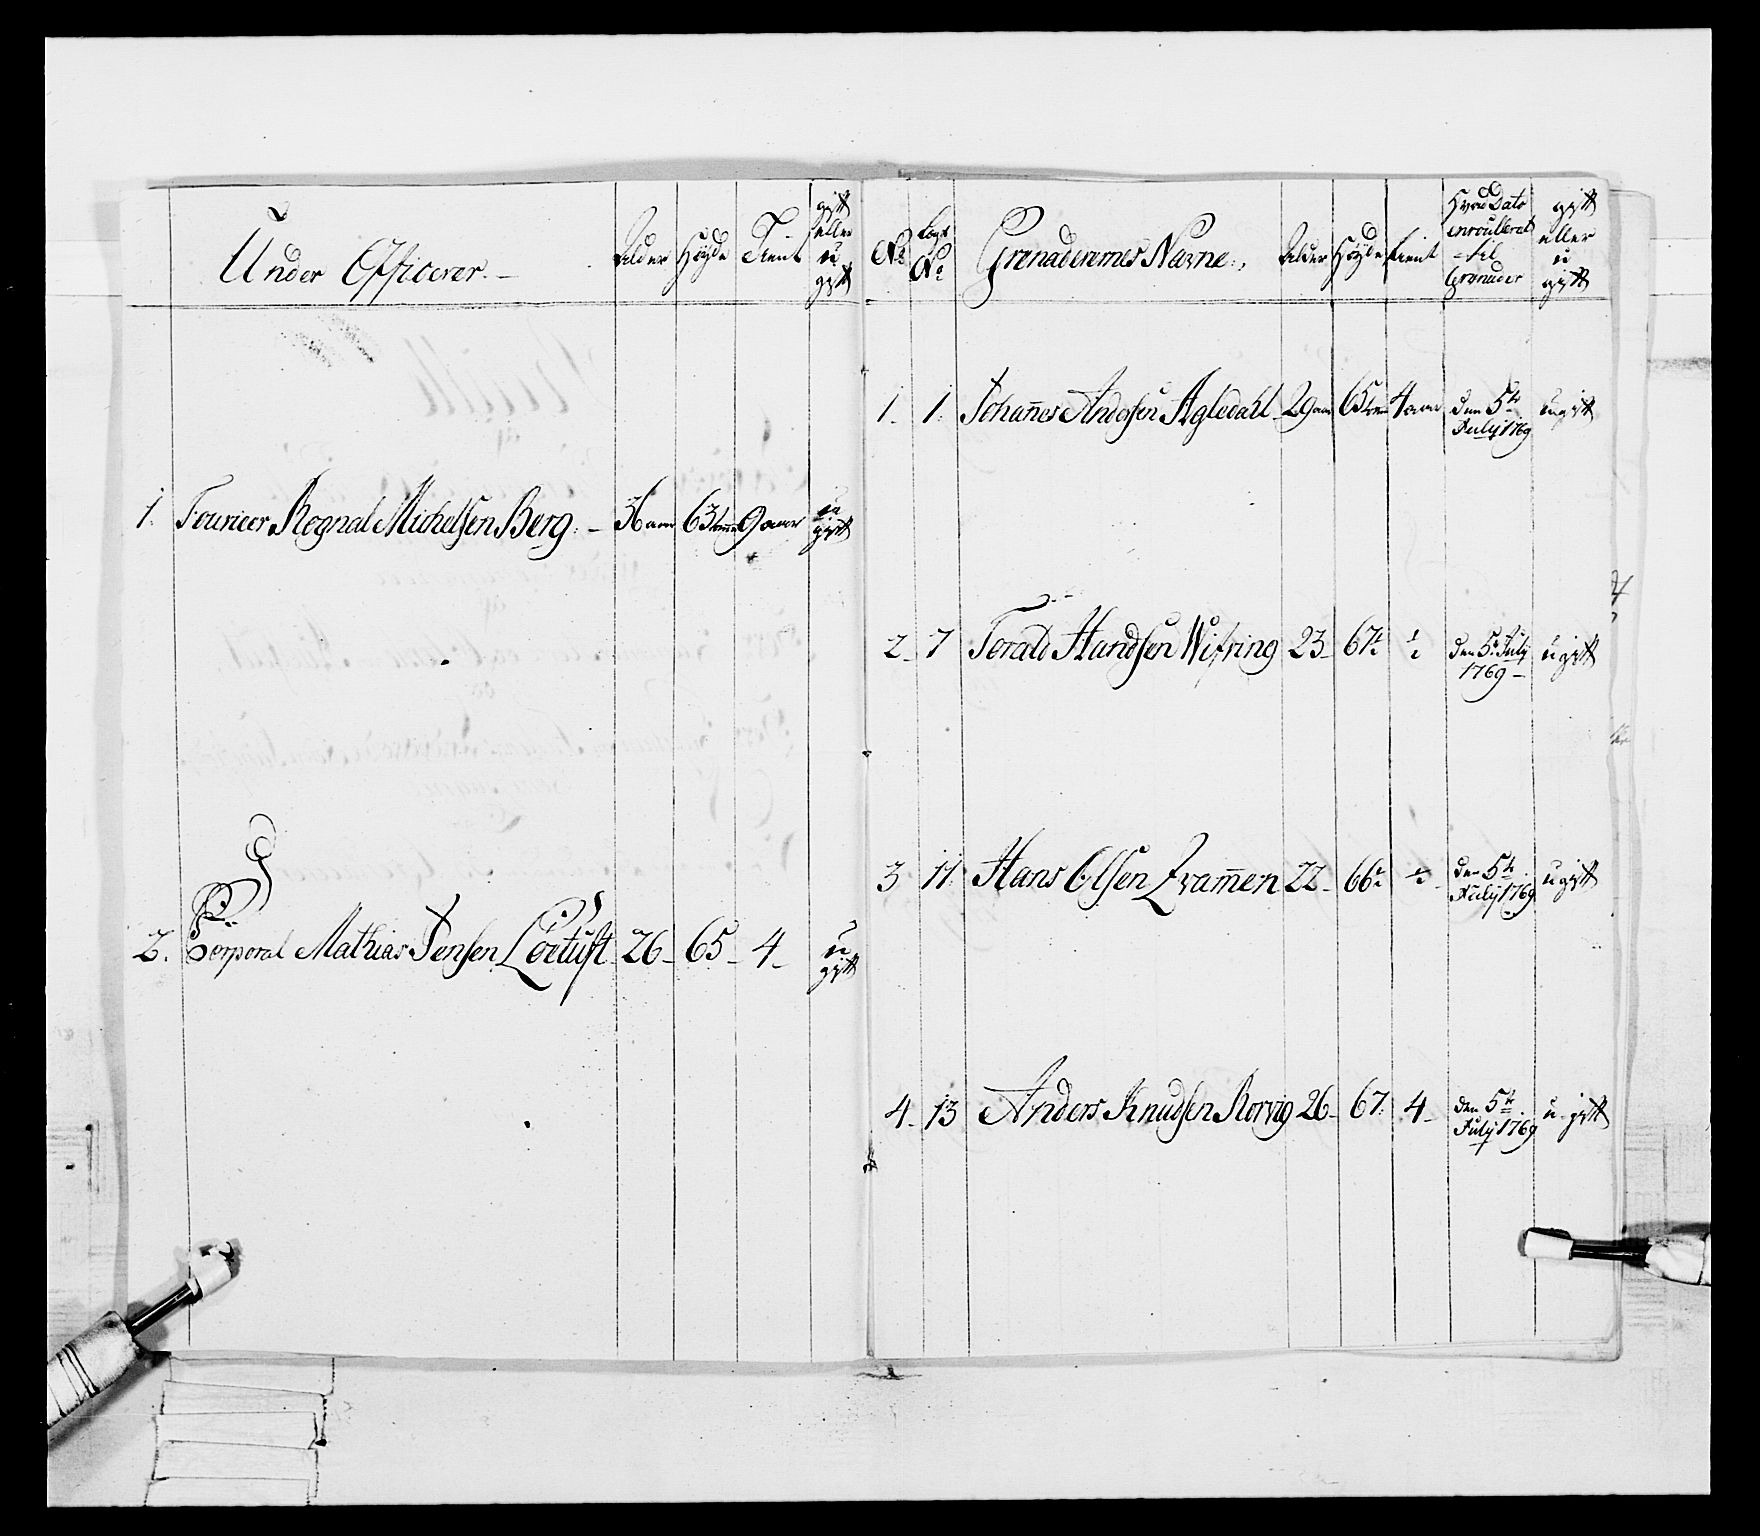 Under Officerer. – Alder Høyde Tient gift eller u gift
1. Fourieer Regnal Michelsen Berg. – 36 aar 63 tomr 9 aar u gift
2. Corporal Mathias Jensen Løetuft 26 – 65 – 4 – u gift
No Lægs No Grenaderernes Navne. Alder Høyde tient Hvad Dato enroullerat til Grenader gift eller u gift
1. 1. Johannes Andersen Agledahl 29 aar 65 tom 4 aar den 5te July 1769 ugift
2. 7 Torald Handsen Wifring 23 – 67 den 5te July 1769 – ugift
3 11. Hans Olsen Qvammen 22 – 66 den 5te July 1769 ugift
4. 13 Anders Knudsen Rorvig 26 – 67. 4 – den 5te July 1769 u gift